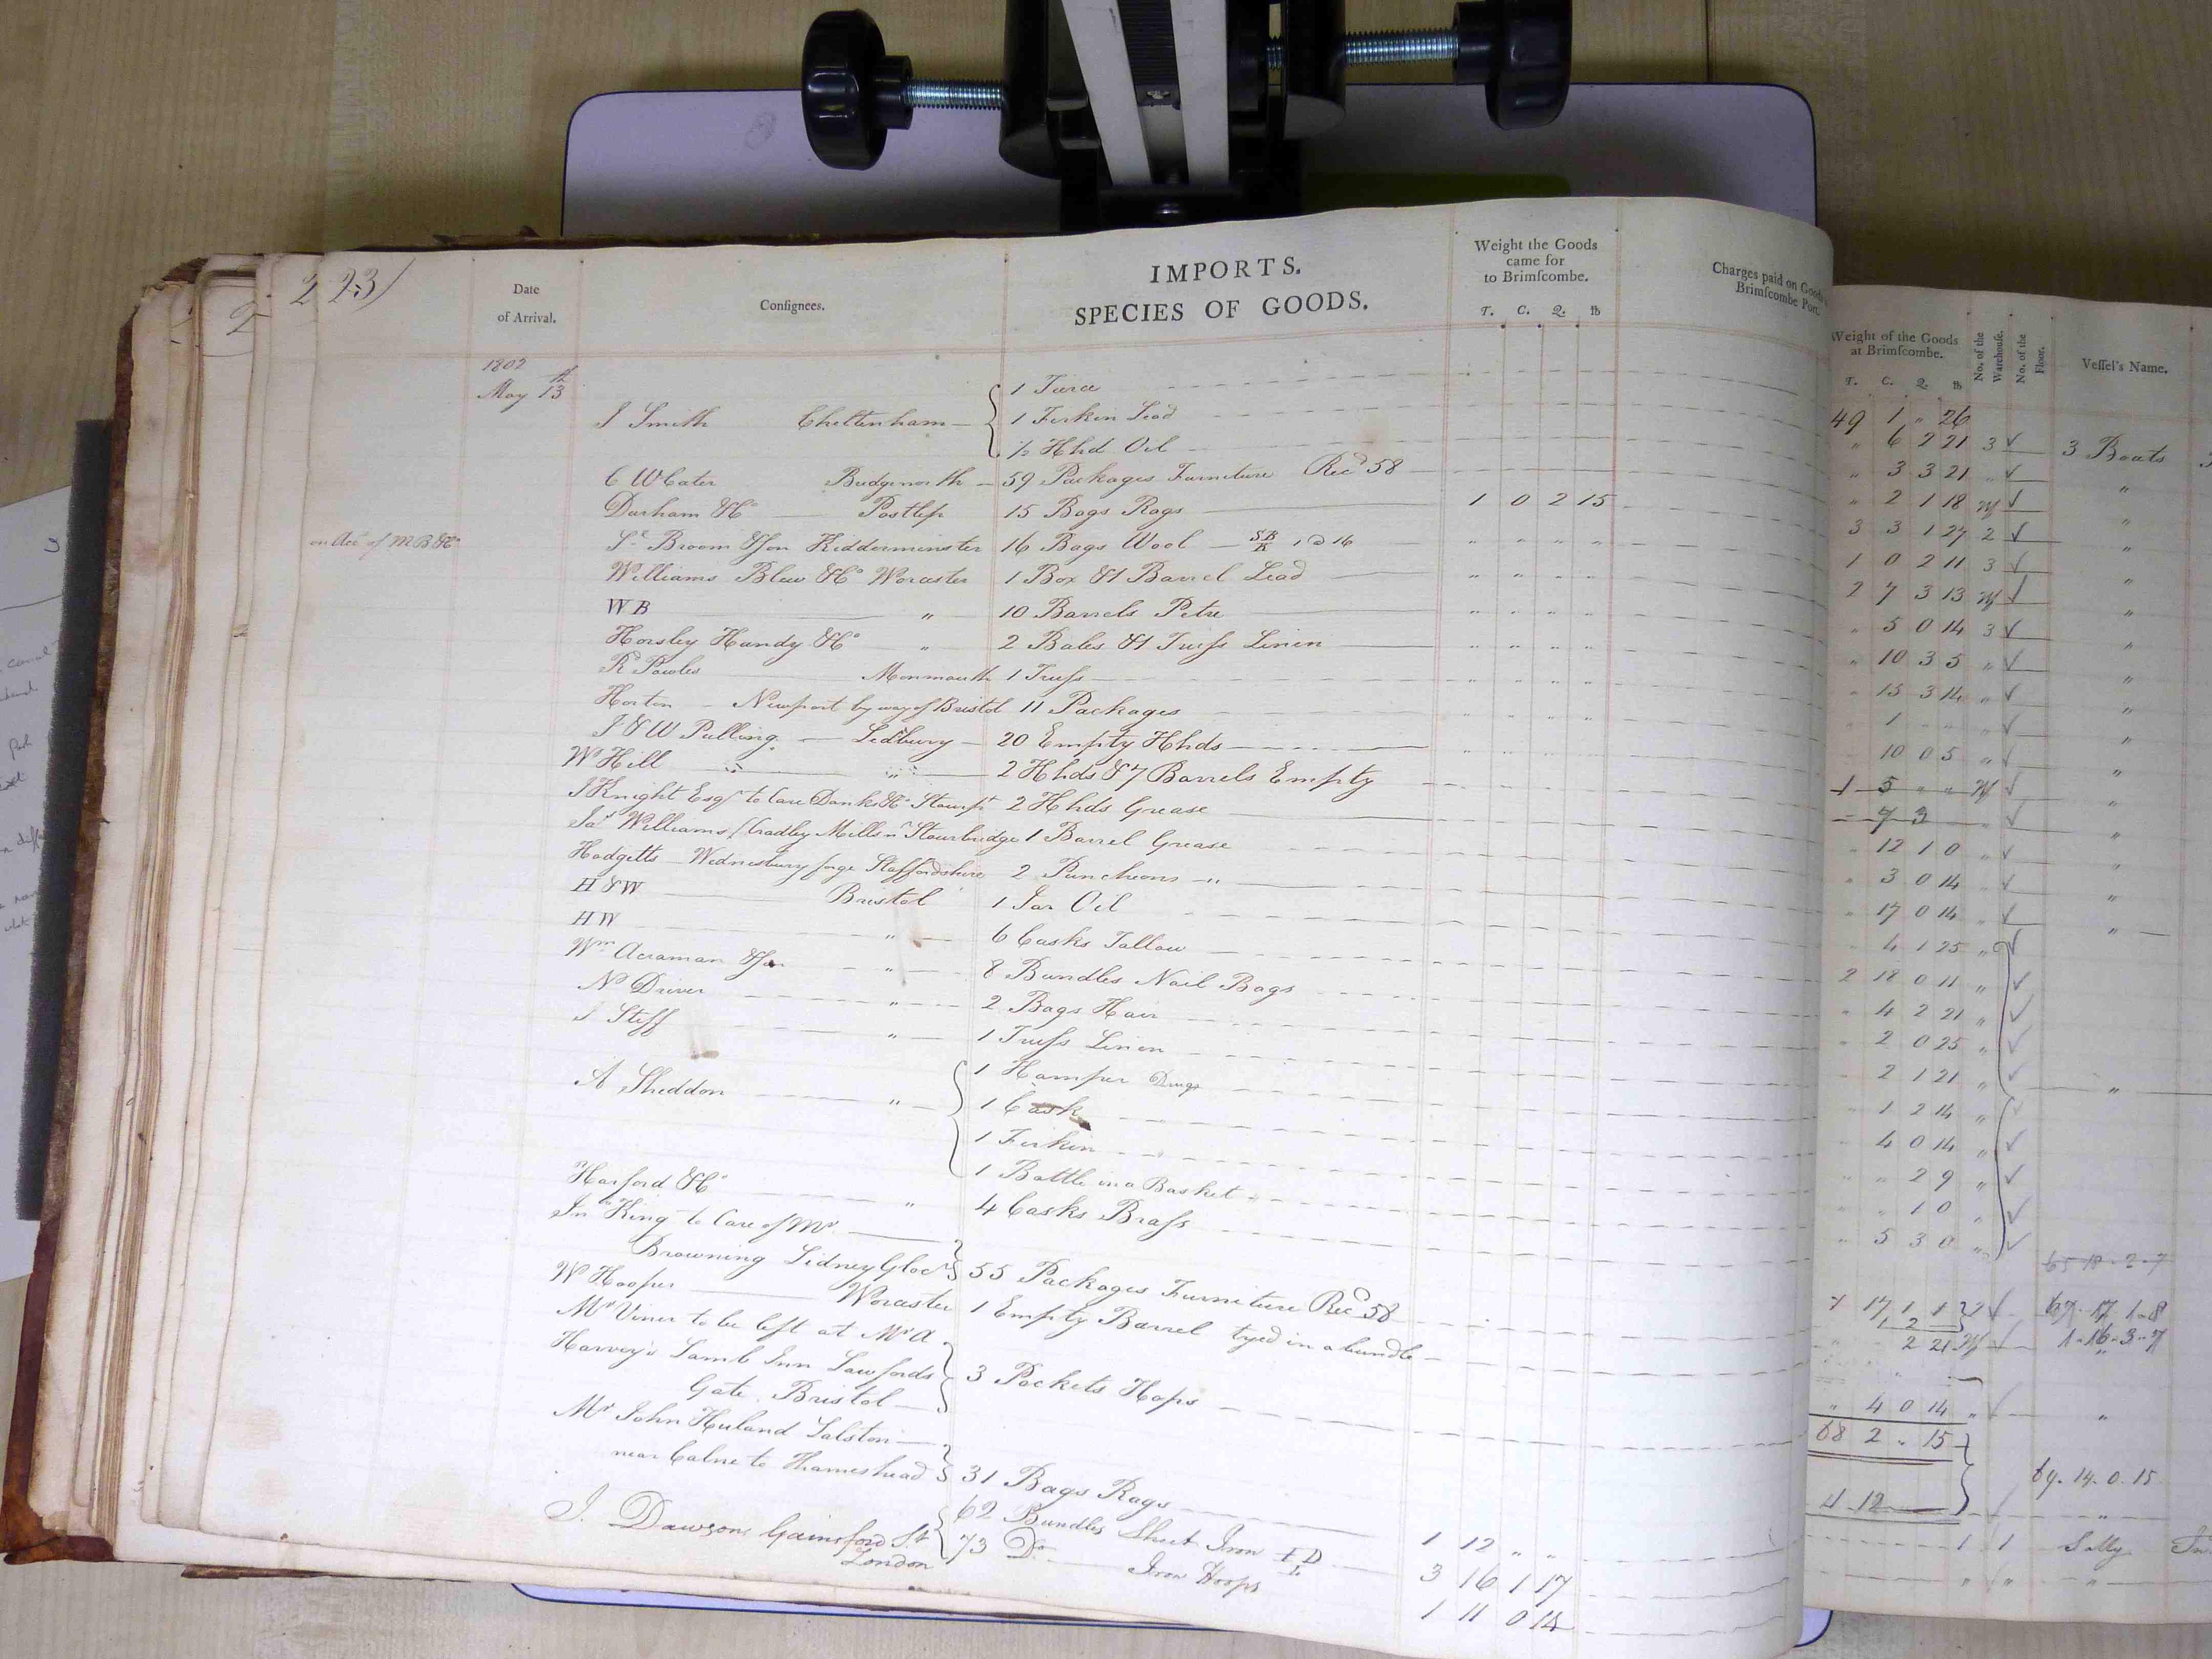 223/
Date
of Arrival.
Consignees.
IMPORTS.
SPECIES OF GOODS.
Weight the Goods
came for
to Brimscombe.
T. C. Q. lb
Charges paid on Goods
Brimscombe Port.
1802
May 13th
J Smith Cheltenham
1 Tierce
1 Firkin Lead
½ Hhd Oil
C W Cater Bridgnorth 59 Packages Furniture Recd 58
Durham & Co Postlip 15 Bags Rags 1 0 2 15
on Acct of MB & Co Sl Broom & Son Kidderminster 16 Bags Wool SB K 1 @ 16 " " " "
Williams Blew & Co Worcester 1 Box & 1 Barrel Lead " " " "
WB " 10 Barrels Petre " " " "
Horsley Handy & Co " 2 Bales & 1 Truss Linen " " " "
Rd Powles Monmouth 1 Truss " " " "
Horton Newport by way of Bristol 11 Packages " " " "
J & W Pulling Ledbury 20 Empty Hhds " " " "
W Hill " 2 Hhds & 7 Barrels Empty
J Knight Esqr to Care Danks & Co Stourpt 2 Hhds Grease
Jas Williams Cradley Mills nr Stourbridge 1 Barrel Grease
Hodgetts Wednesbury forge Staffordshire 2 Puncheons "
H & W Bristol 1 Jar Oil
HW " 6 Casks Tallow
Wm Acraman & Son " 8 Bundles Nail Bags
N Driver " 2 Bags Hair
J Steff " 1 Truss Linen
A Sheddon "
1 Hamper Drugs
1 Cask "
1 Firkin "
1 Bottle in a Basket
Harford & Co " 4 Casks Brass
Jn King to Care of Mr
Browning Lidney Glocr 55 Packages Furniture Recd 58
W Hooper Worcester 1 Empty Barrel tyed in a bundle
Mr Viner to be left at Mr A
Harvey's Lamb Inn Lawfords 3 Pockets Hops
Gate Bristol
Mr John Huland Calston
near Calne to Thameshead 31 Bags Rags 1 12 " "
J. Dawson Gainsford St 62 Bundles Sheet Iron ID L 3 16 1 17
London 73 Do Iron Hoops 1 11 0 14
Weight of the Goods
at Brimscombe.
T. C. Q. lb
No. of the
Warehouse.
No. of the
Floor.
Vessel's Name.
49 1 " 26
" 6 2 21 3 3 Boats
" 3 3 21 " "
" 2 1 18 W "
3 3 1 27 2 "
1 0 2 11 3 "
2 7 3 13 W "
" 5 0 14 3 "
" 10 3 5 " "
" 15 3 14 " "
" 1 " " "
" 10 0 5 " "
1 5 " " W "
7 3 "
" 12 1 0 " "
" 3 0 14 " "
" 17 0 14 " "
" 4 1 25 "
2 18 0 11 "
" 4 2 21 "
" 2 0 25 "
" 2 1 21 " "
" 1 2 14 "
" 4 0 14 "
" " 2 9 "
" " 1 0 "
" 5 3 0 "
65 18 2 7
17 1 1 67 17 1 8
1 2 1 16 3 7
2 21 W "
" 4 0 14 " "
68 2 " 15
69 14 0 15
1 12
1 1 Sally
" " "